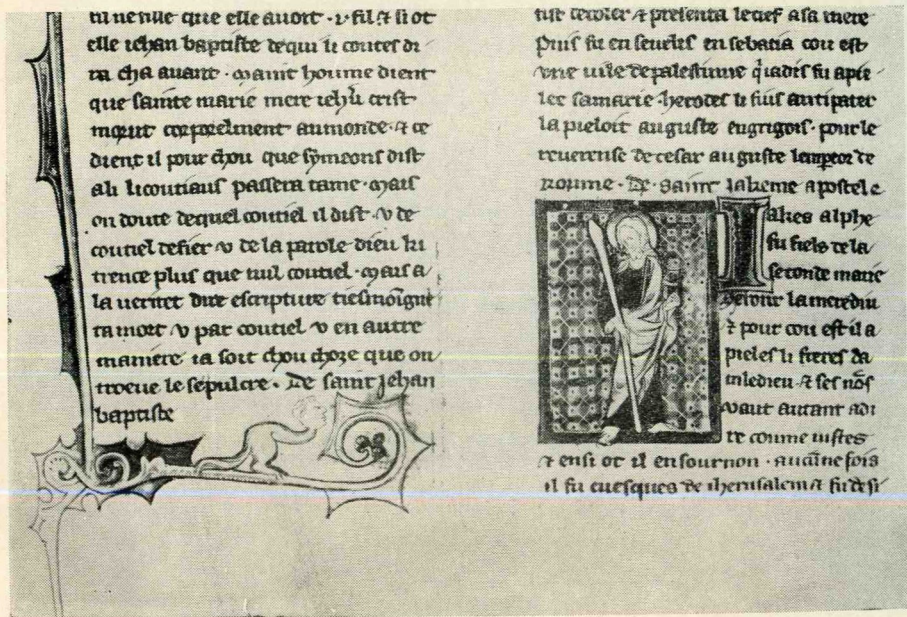 elle iehan baptiste de qui li contes di
ra cha auant · maint houme dient
que sainte marie mere iehu crist
morut corporelment au monde · ⁊ ce
dient il pour chou que symeons dist
ali li coutiaus passera tame · mais
on doute de quel coutiel il dist · v de
coutiel de fier v de la parole dieu ki
trence plus que nul coutiel · mais a
la ueritet dire escripture
ta mort v par coutiel v en autre
maniere ia soit chou choze que on
troeue le sepulcre · De saint Jehan
baptiste
⁊ presenta le cief a sa mere
Puis fu en seuelis en sebatia cou est
vne uile de palestinne q̃ iadis fu apie
lee samarie · herodes li fius antipater
la pieloit auguste en grigois · pour le
reuerense de cesar auguste
roume · De saint iakeme apostele
Iakes alphe
fu fiels de la
seconde marie
⁊ pour cou est il a
pieles li freres da
mledieu ⁊ ses nõs
vaut autant a di
re comme iustes
⁊ ensi ot il en sournon · aucũne fois
il fu euesques de iherusalem ⁊ fu de si